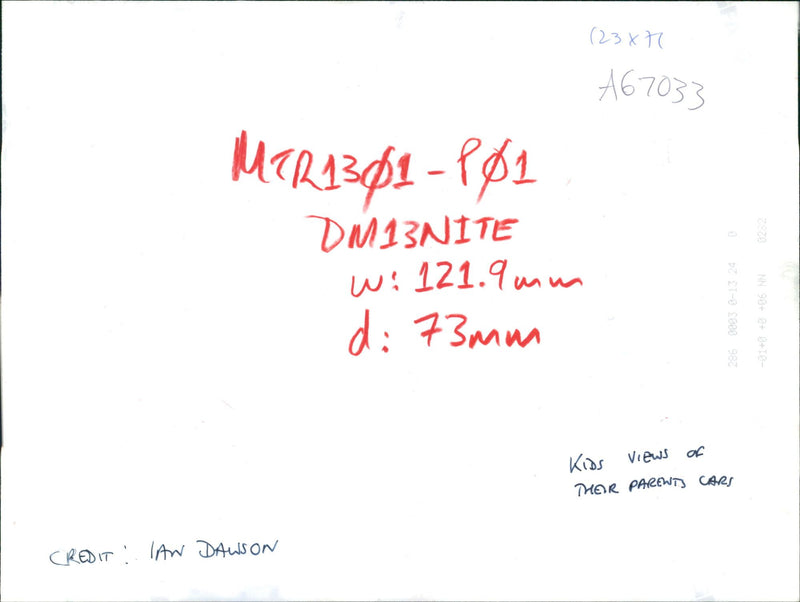 (23 x 71
A67033
MTR13Ø1-PØ1
DM13NITE
w: 121.9mm
d: 73mm
286 0003 0-13 24 0
-01+0 +0 +06 NN 0262
KIDS VIEWS OF
THEIR PARENTS CARS
CREDIT: IAN DAWSON